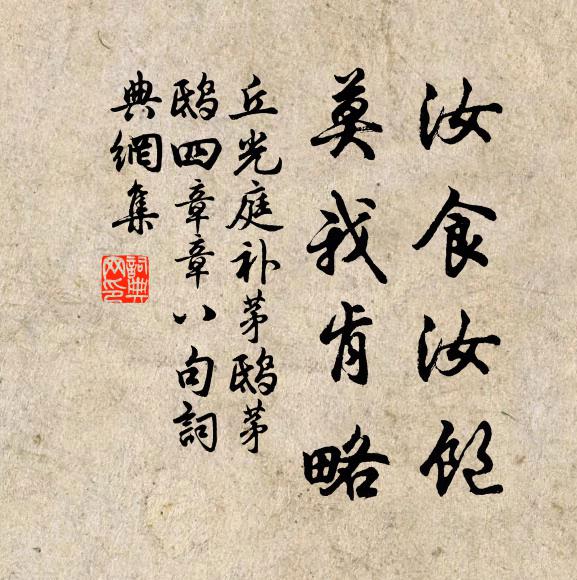 汝食汝飽
莫我肯略
丘光庭补茅鴟茅
鴟四章章八句詞
典網集
詞典
网印